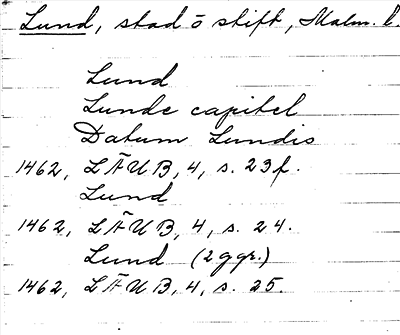 Lund, stad o stift, Malm. l.
Lund
Lunde capitel
Datum Lundis
1462, LÄUB, 4, s. 23f.
Lund
1462, LÄUB, 4, s. 24.
Lund (2 ggr.)
1462, LÄUB, 4, s. 25.